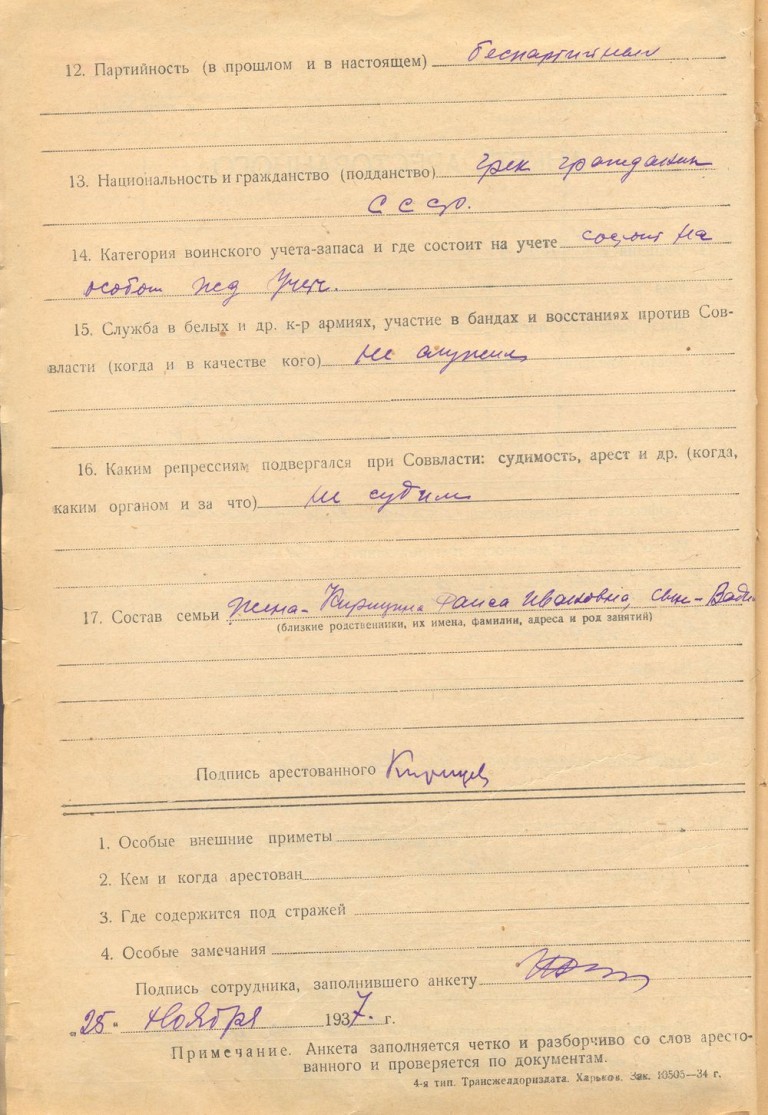 12. Партийность (в прошлом и в настоящем) беспартийный
13. Национальность и гражданство (подданство) грек гражданин
СССР.
14. Категория воинского учета-запаса и где состоит на учете состоит на
особом жд учете.
15. Служба в белых и др. к-р армиях, участие в бандах и восстаниях против Сов-
власти (когда и в качестве кого) не служил
16. Каким репрессиям подвергался при Соввласти: судимость, арест и др. (когда,
каким органом и за что) не судим
17. Состав семьи жена- Раиса Ивановна, сын-
(близкие родственники, их имена, фамилии, адреса и род занятий)
Подпись арестованного
1. Особые внешние приметы
2. Кем и когда арестован
3. Где содержится под стражей
4. Особые замечания
Подпись сотрудника, заполнившего анкету
„25" ноября 1937. г.
Примечание. Анкета заполняется четко и разборчиво со слов аресто-
ванного и проверяется по документам.
4-я тип. Трансжелдориздата. Харьков. Зак. 10505—34 г.